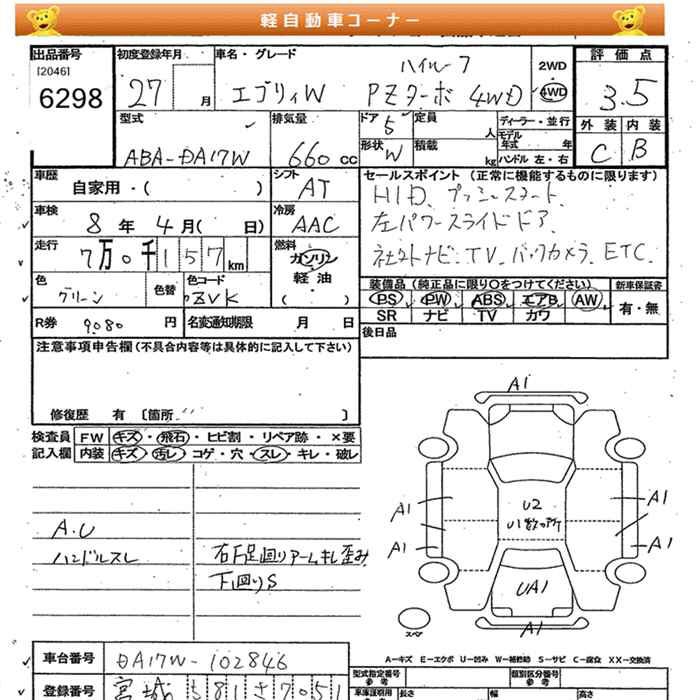 軽自動車コーナー
出品番号 初度登録年月 車名・グレード ハイルーフ 2WD 評価点
[2046]
6298 27 月 エブリィW PZターボ 4WD 4WD 3.5
型式 排気量 ドア 5 定員 人 ディーラー・並行 外装 内装
モデル年式 年
ABA-DA17W 660 cc 形状 W 積載 kg ハンドル 左・右 C B
車歴 シフト セールスポイント (正常に機能するものに限ります)
自家用・( ) AT HID、プッシュスタート、
車検 冷房 左パワースライドドア
8 年 4 月( 日) AAC
走行 燃料 社外ナビ・TV、バックカメラ、ETC.
7万0千157km ガソリン
軽油
( )
色 色替 色コード 装備品 (純正品に限り○をつけてください) 新車保証書
グリーン ZVK PS PW ABS エアB AW 有・無
SR ナビ TV カワ
R券 9080 円 名変通知期限 月 日 後日品
注意事項申告欄(不具合内容等は具体的に記入して下さい)
修復歴 有 [箇所 ]
検査員 FW キズ・飛石・ヒビ割・リペア跡・×要
記入欄 内装 キズ・汚レ・コゲ・穴・スレ・キレ・破レ
A1
A1 U2 A1
U1数ヶ所
A1 A1
UA1
A1
スペア
A.U
ハンドルスレ 右F足廻りアームキレ歪み
下廻りS
A－キズ E－エクボ U－凹み W－補修跡 S－サビ C－腐食 XX－交換済
車台番号 DA17W-102846 型式指定番号 類別区分番号
参考 参考
登録番号 宮城 581 さ 7051 長さ 幅 高さ